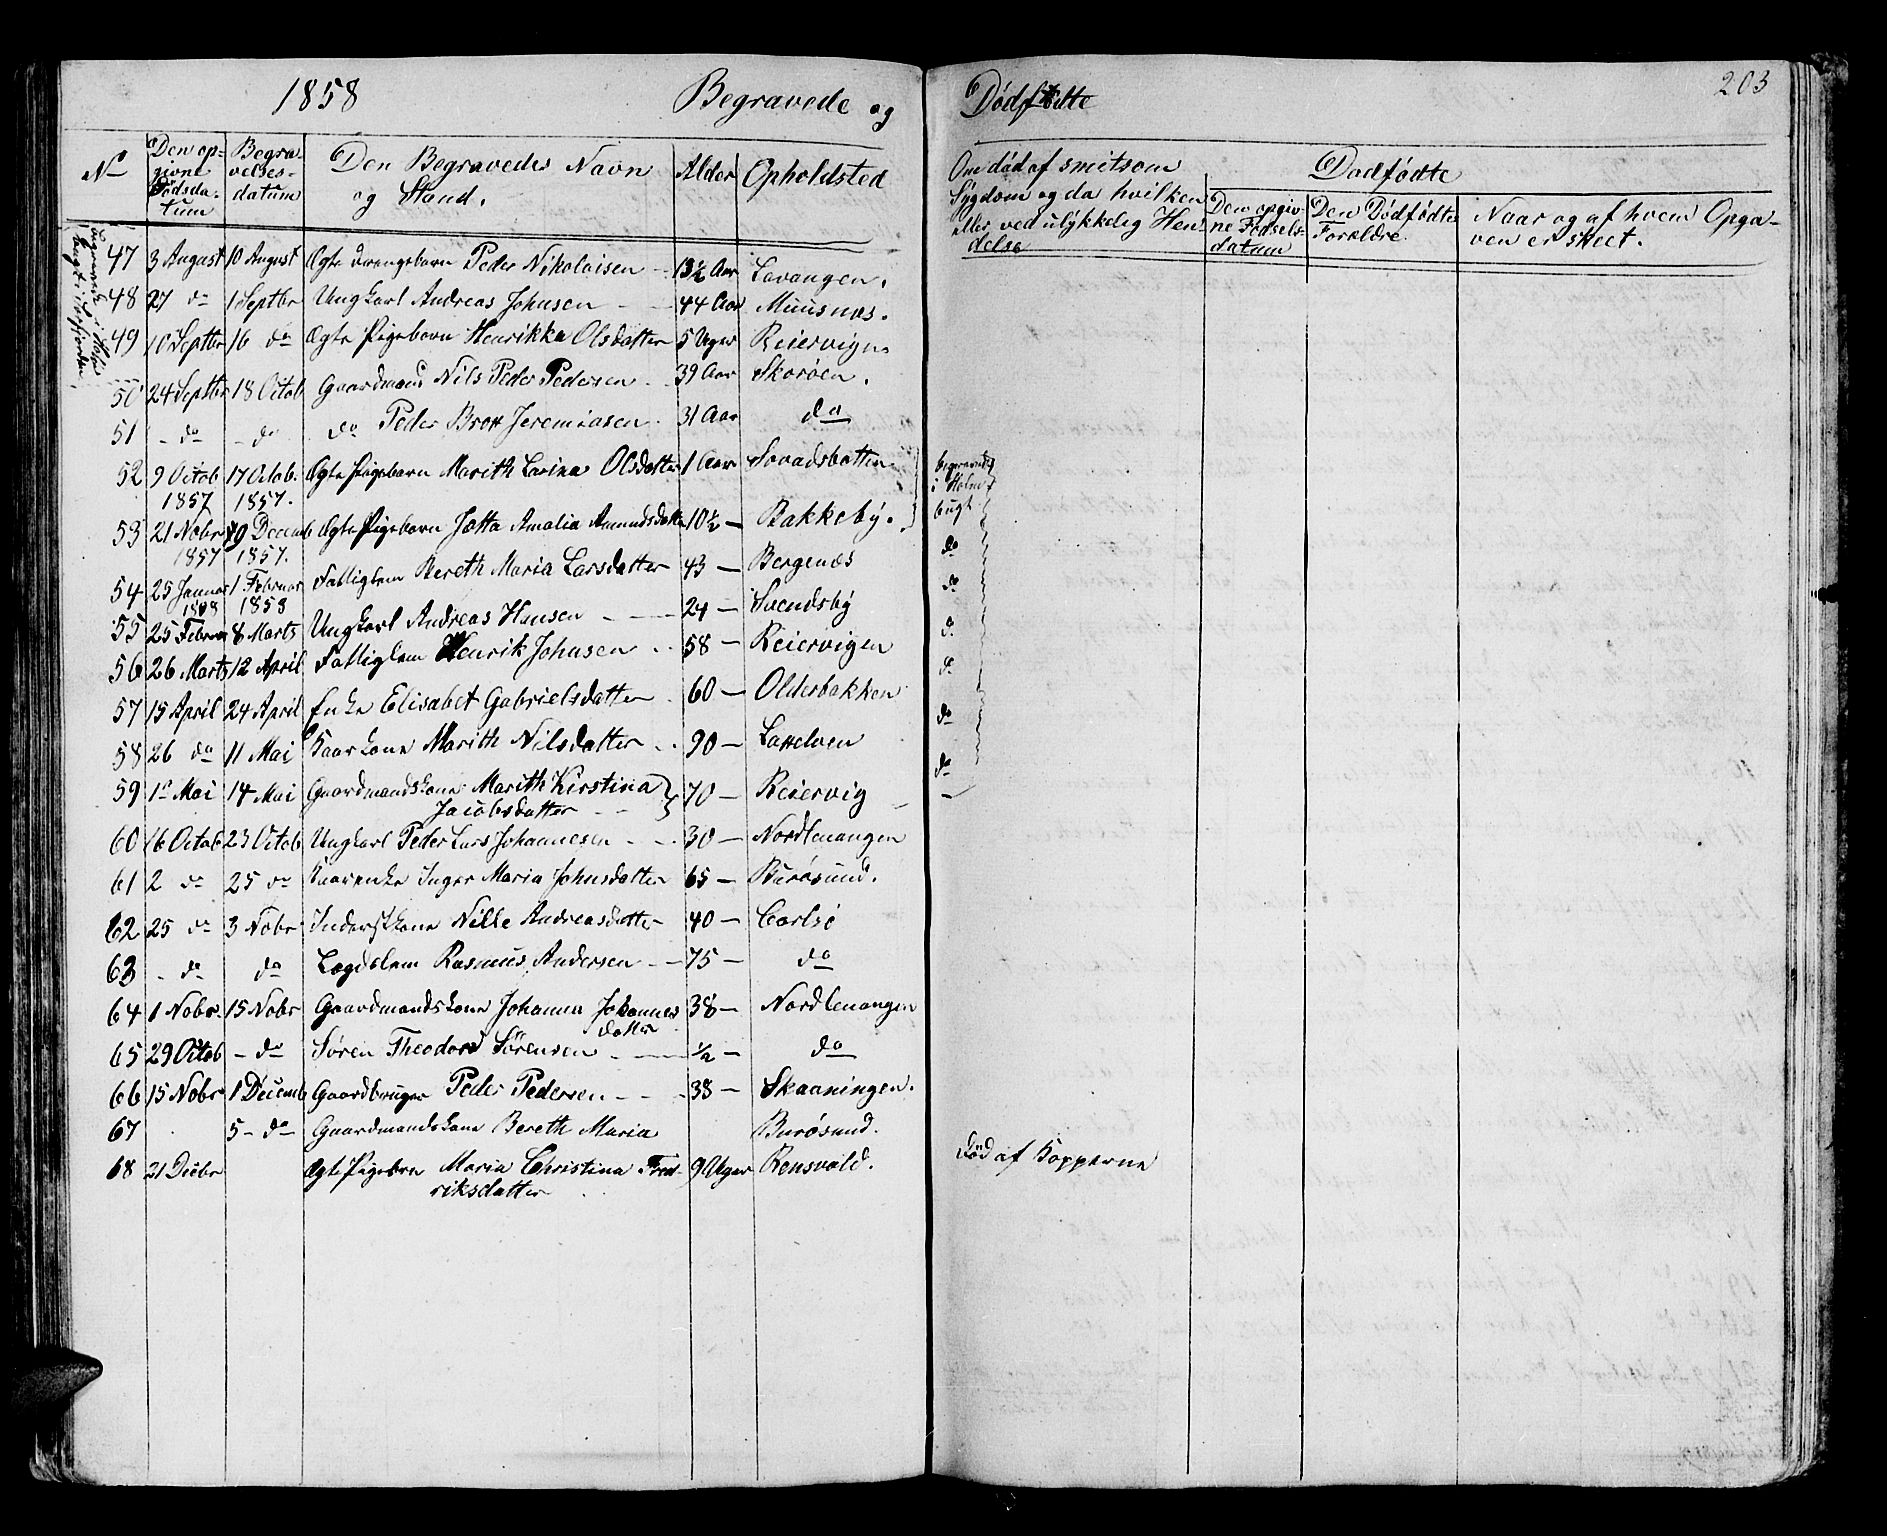 1858 Begravede og Dødfødte 203
No Den opgivne Dødsdatum Begravelsesdatum Den Begravedes Navn og Stand. Alder Opholdsted Om død af smitsom Sygdom og da hvilken eller ved ulykkelig Hændelse Dødfødte
Den opgivne Fødselsdatum Den Dødfødtes Forældre. Naar og af hvem Opgaven er skeet.
47 3 August 10 August Ægte Drengebarn Peder Nikolaisen 13½ Aar Lavangen.
48 27 do 1 Septbr Ungkarl Andreas Johnsen 44 Aar Muusnæs.
49 10 Septbr 16 do Ægte Pigebarn Henrikka Olsdatter 5 Uger Reiervigen
50 24 Septbr 18 Octob Gaardmand Nils Peder Pedersen 39 Aar Skorøen.
51 - do - do do Peder Brox Jeremiasen 31 Aar do
52 9 Octob 1857 17 Octob. 1857. Ægte Pigebarn Marith Larina Olsdatter 1 Aar begravede i Holmbugt
53 21 Nobr 1857 19 Decemb 1857. Ægte Pigebarn Jætta Amalia Amundsdatter 10½ — Bakkeby.
54 25 Januar 1858 1 Februar 1858 Fattiglem Bereth Maria Larsdatter 43 — Bergenæs do
55 25 Februar 8 Marts Ungkarl Andreas Hansen 24 — Svendsby do
56 26 Marts 12 April Fattiglem Henrik Johnsen 58 — Reiervigen do
57 15 April 24 April Enke Elisabet Gabrielsdatter 60 — Olderbakken do
58 26 do 11 Mai Kaarkone Marith Nilsdatter 90 — do
59 1ste Mai 14 Mai Gaardmandskone Marith Kirstina Jacobsdatter 70 — Reiervig do
60 16 Octob 23 Octob Ungkarl Peder Lars Johannesen 30 — Nordlenangen
61 2 do 25 do Kaarenke Inger Maria Johnsdatter 65 — Burøsund.
62 25 do 3 Nobr Inderstkone Nille Andreasdatter 40 — Carlsø
63 - do do Lægdslem Rasmus Andersen 75 — do
64 1 Nobr. 15 Nobr Gaardmandskone Johanna Johannesdatter 38 — Nordlenangen
65 29 Octob - do Søren Theodor Sørensen ½ — do
66 15 Nobr 1 Decemb Gaardbruger Peder Pedersen 38 — Skaaningen.
67 5 - do Gaardmandskone Bereth Maria Burøsund.
68 21 Decbr Ægte Pigebrn Maria Christina Fredriksdatter 9 Uger Rensvold. Død af Kopperne